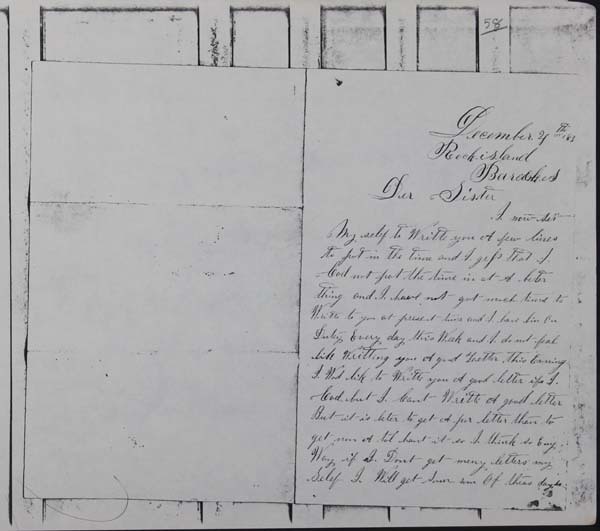 58
December 4th
Rock island
Baracks
Der Sister
I now set
My self to Writte you A few lines
to put in the time and I gess that I
Cod not put the time in at A beter
thing and I have not got much time to
Writte to you at present time and I have bin On
Duty Every day this Week and I do not feal
like Writting you A good Letter this Evning
I Wod lik to Writte you A good letter if I
Cod but I Cant Writte A good letter
But it is beter to get A por letter then to
get non A tol hant it so I think so Eny
Way if I Dont get meny letters my
Self I Will get Sum one Of theas days